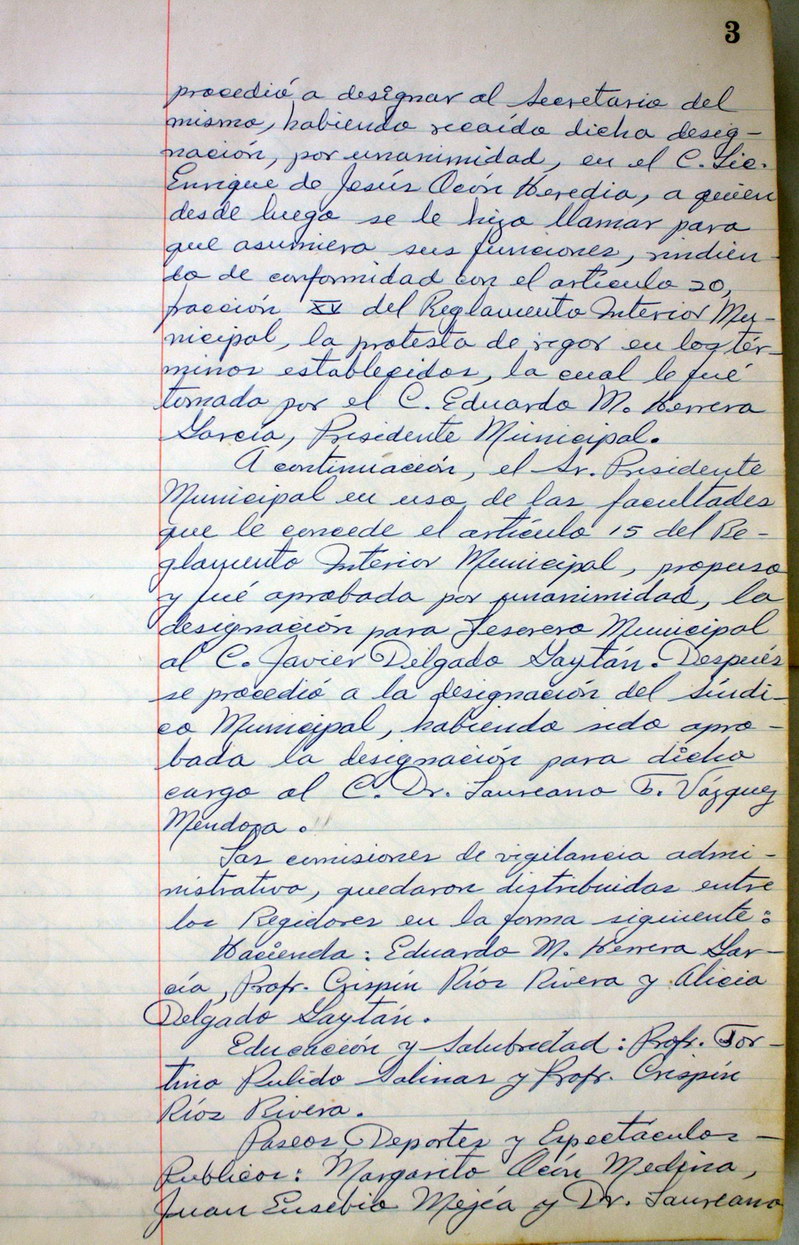 3
procedió a designar al Secretario del
mismo, habiendo recaído dicha desig-
nación, por unanimidad, en el C. Lic.
Enrique de Jesús Ocón Heredia, a quien
desde luego se le hizo llamar para
que asumiera sus funciones, rindien-
do de conformidad con el artículo 20,
fracción XV del Reglamento Interior Mu-
nicipal, la protesta de rigor en los tér-
minos establecidos, la cual le fué
tomada por el C. Eduardo M. Herrera
García, Presidente Municipal.
A continuación, el Sr. Presidente
Municipal en uso de las facultades
que le concede el artículo 15 del Re-
glamento Interior Municipal, propuso
y fué aprobada por unanimidad, la
designación para Tesorero Municipal
al C. Javier Delgado Gaytán. Después
se procedió a la designación del Síndi-
co Municipal, habiendo sido apro-
bada la designación para dicho
cargo al C. Dr. Laureano T. Vázquez
Mendoza.
Las comisiones de vigilancia admi-
nistrativa, quedaron distribuidas entre
los Regidores en la forma siguiente:
Hacienda: Eduardo M. Herrera Gar-
cía, Profr. Crispín Ríos Rivera y Alicia
Delgado Gaytán.
Educación y Salubridad: Profr. For-
tino Pulido Salinas y Profr. Crispín
Ríos Rivera.
Paseos, Deportes y Espectáculos -
Publicos: Margarito Ocón Medina,
Juan Eusebio Mejía y Dr. Laureano